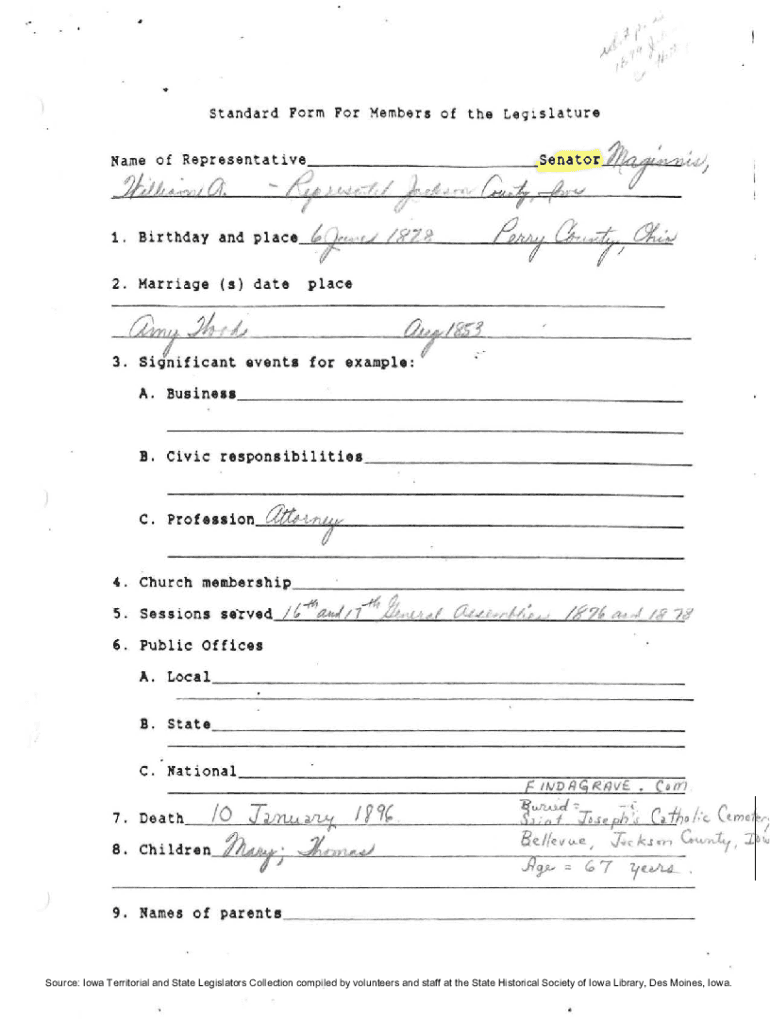 Standard Form For Members of the Legislature
Name of Representative Senator Maginnis,
William A. - Represented Jackson County, Iowa
1. Birthday and place 6 June 1828 Perry County, Ohio
2. Marriage (s) date place
Amy Aug 1853
3. Significant events for example:
A. Business
B. Civic responsibilities
C. Profession Attorney
4. Church membership
5. Sessions served 16th and 17th General Assemblies 1876 and 1878
6. Public Offices
A. Local
B. State
C. National
FINDAGRAVE. Com
7. Death 10 January 1896 Buried = Saint Joseph's Catholic Cemetery,
8. Children Mary; Thomas Bellevue, Jackson County, Iowa
Age = 67 years.
9. Names of parents
Source: Iowa Territorial and State Legislators Collection compiled by volunteers and staff at the State Historical Society of Iowa Library, Des Moines, Iowa.